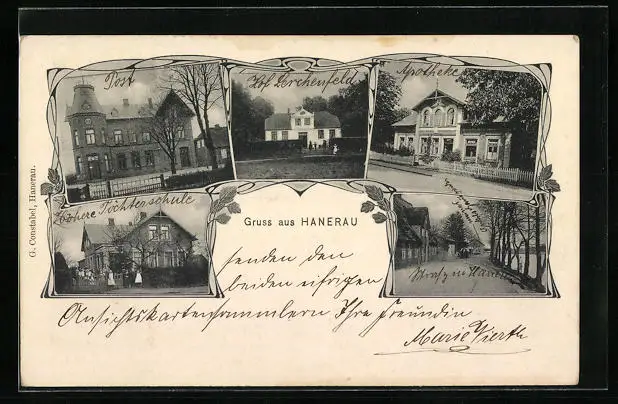 Post
Hof Lerchenfeld
Apotheke
G. Constabel, Hanerau.
Höhere Töchterschule
Gruss aus HANERAU
Straße in Hanerau
senden den
beiden eifrigen
Ansichtskartensammlern Ihre Freundin
Marie Vierth